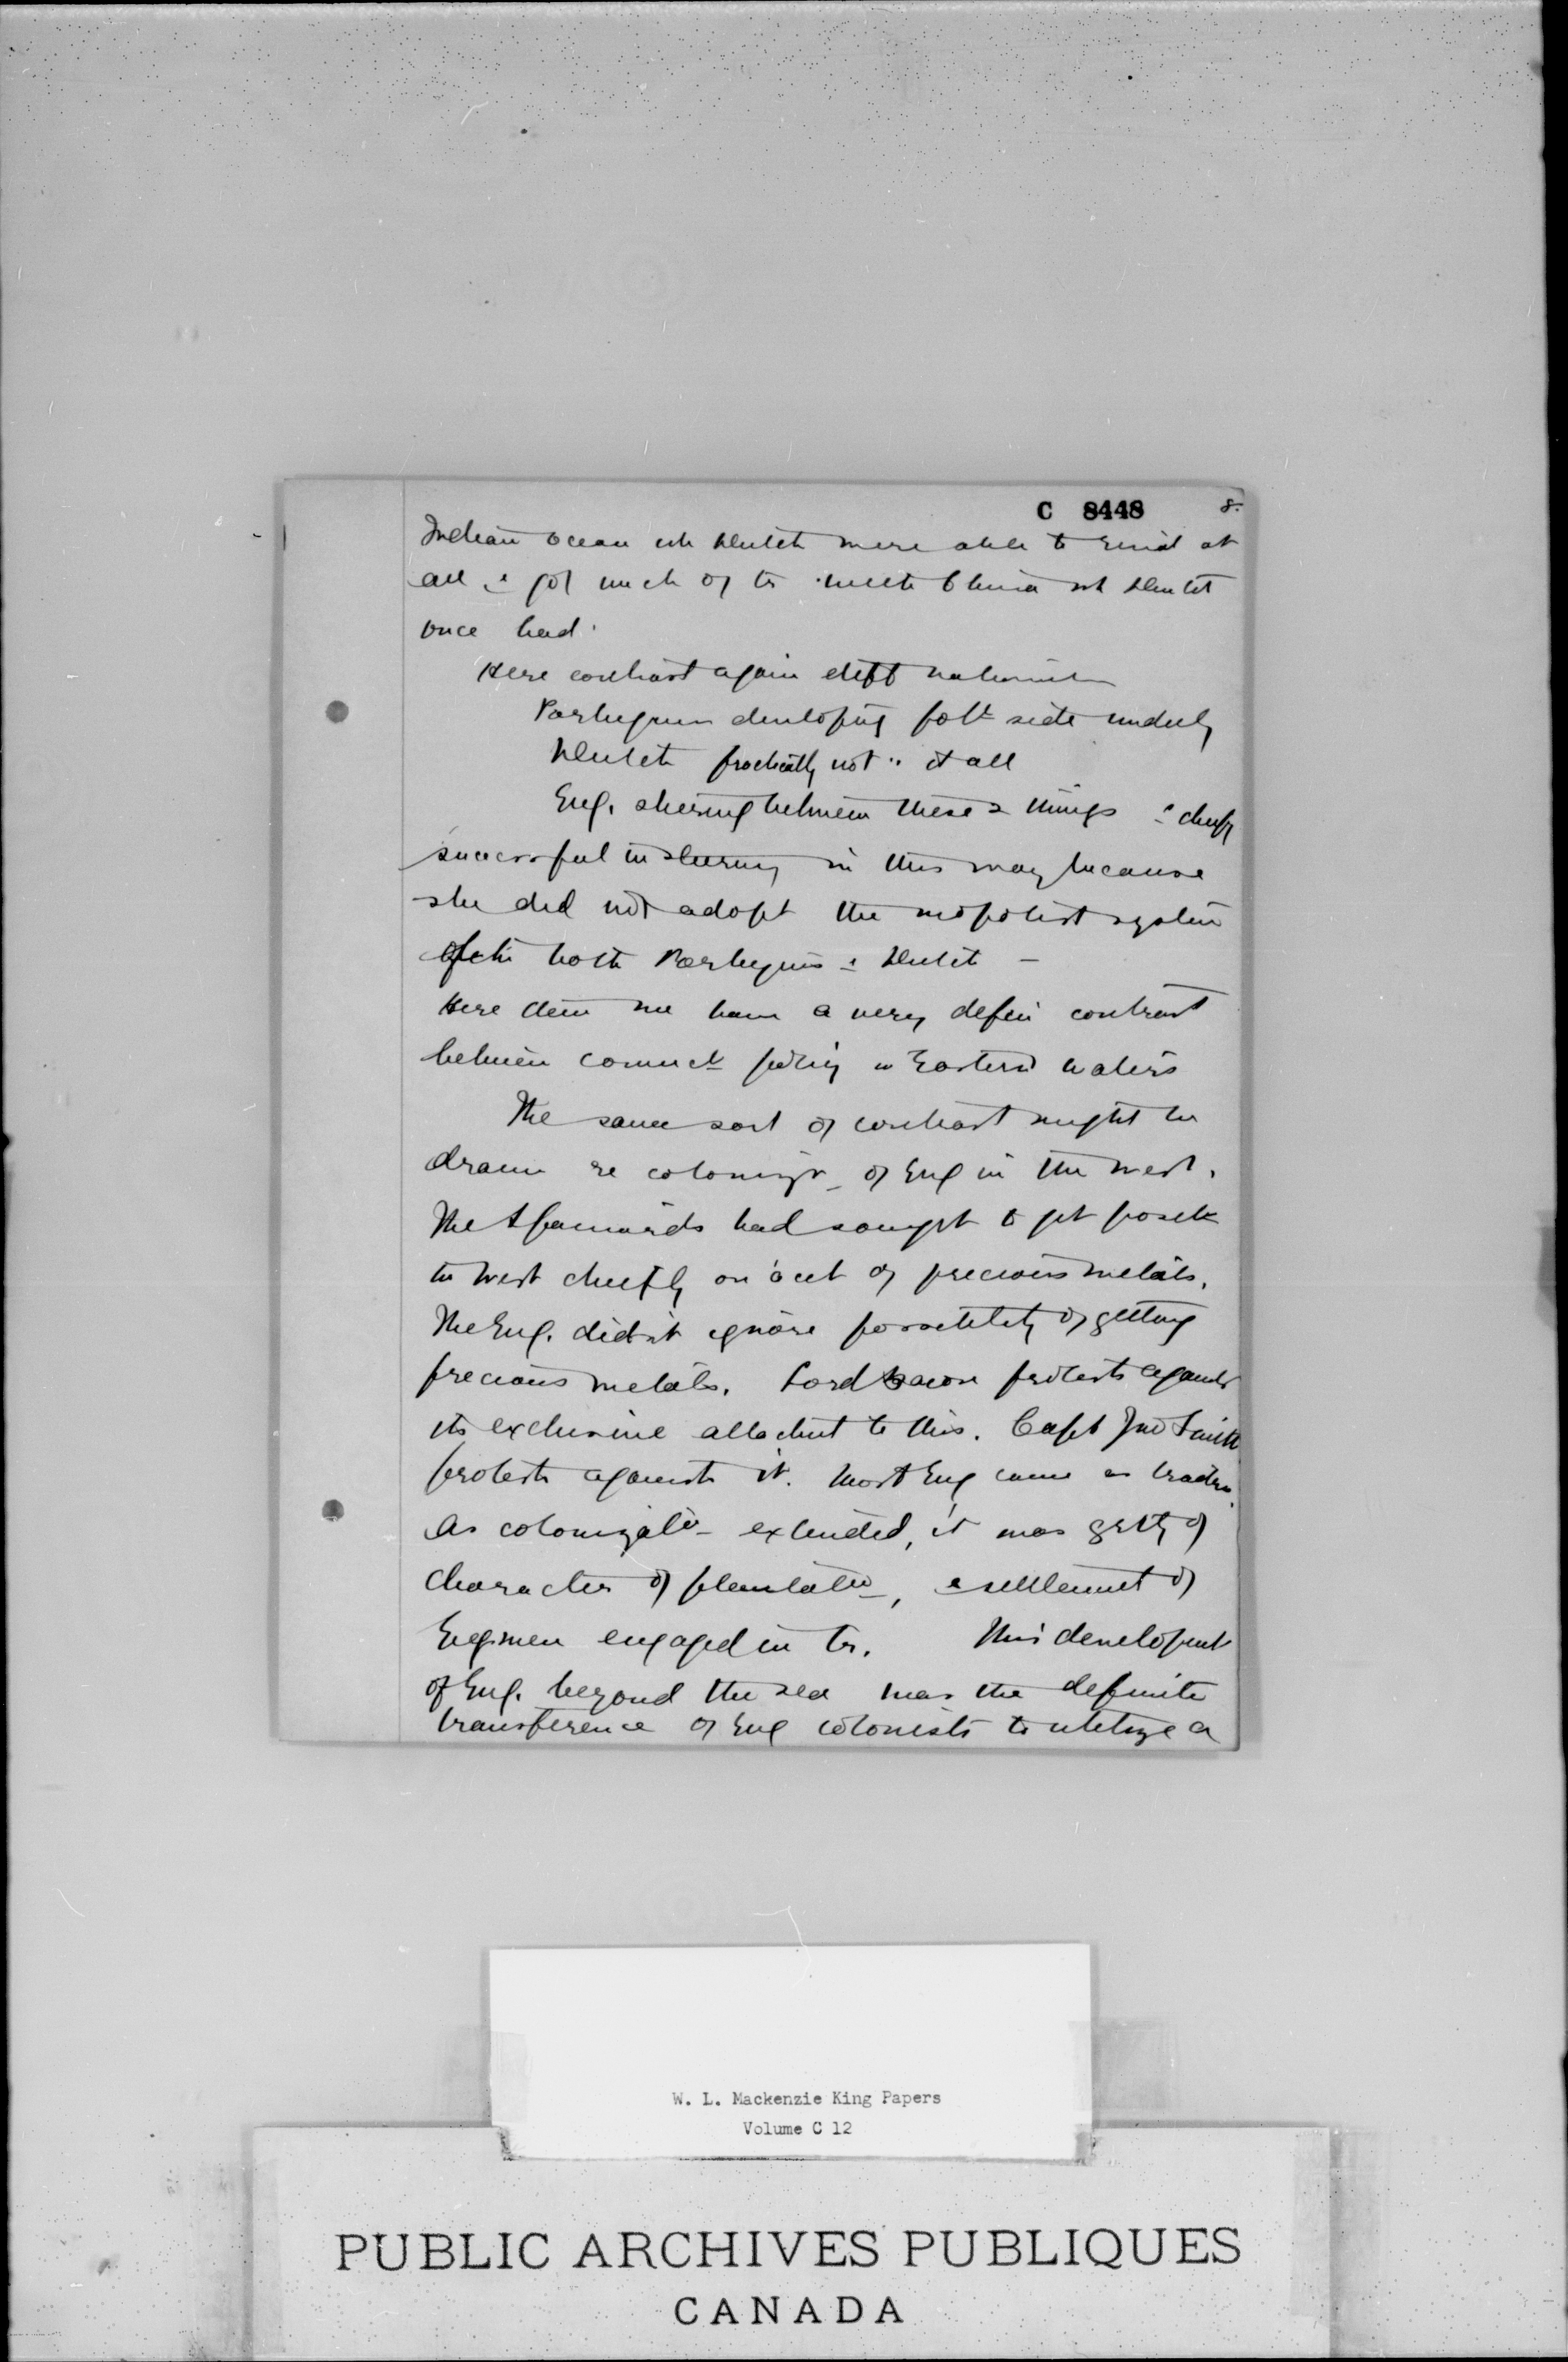 C 8448 8.
Indian Ocean wh Dutch were able to send at
all & got much of tr. with China wh Dutch
once had.
Here contrast again difft nationalit
Portuguese developing polt side unduly
Dutch practically not " at all
Eng. steering between these 2 things & chiefly
successful in steering in this way because
she did not adopt the mopolist system
of the both Portugues & Dutch –
Here then we have a very defin contrast
between commcl policy in Eastern waters
The same sort of contrast might be
drawn re colonizn of Eng in the west.
The Spaniards had sought to get possn
in West chiefly on acct of precious metals.
The Eng. didn't ignore possibility of getting
precious metals. Lord Bacon protests against
its exclusive attachmt to this. Capt Jno Smith
protests against it. Most Eng came as traders.
As colonizatio– extended, it was grtly of
character of plantatio–, & settlement of
Engmen engaged in tr. This developmt
of Eng. beyond the sea was the definite
transference of Eng colonists to utilize a
W. L. Mackenzie King Papers
Volume C 12
PUBLIC ARCHIVES PUBLIQUES
CANADA